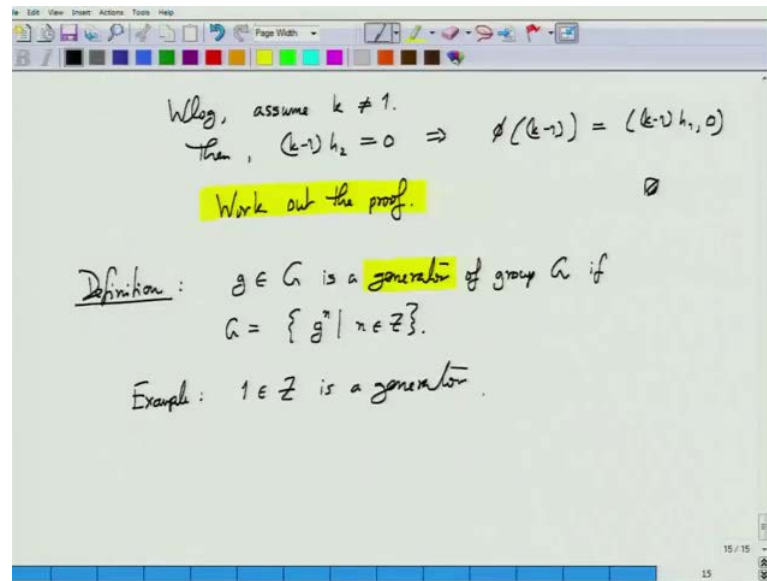 le Edit View Insert Actions Tools Help
Page Width
B I
Wlog, assume k ≠ 1.
Then, (k-1) h₂ = 0 ⇒ φ((k-1)) = ((k-1) h₁, 0)
Work out the proof.
Definition : g ∈ G is a generator of group G if
G = { gⁿ | n ∈ Z}.
Example : 1 ∈ Z is a generator.
15 / 15
15